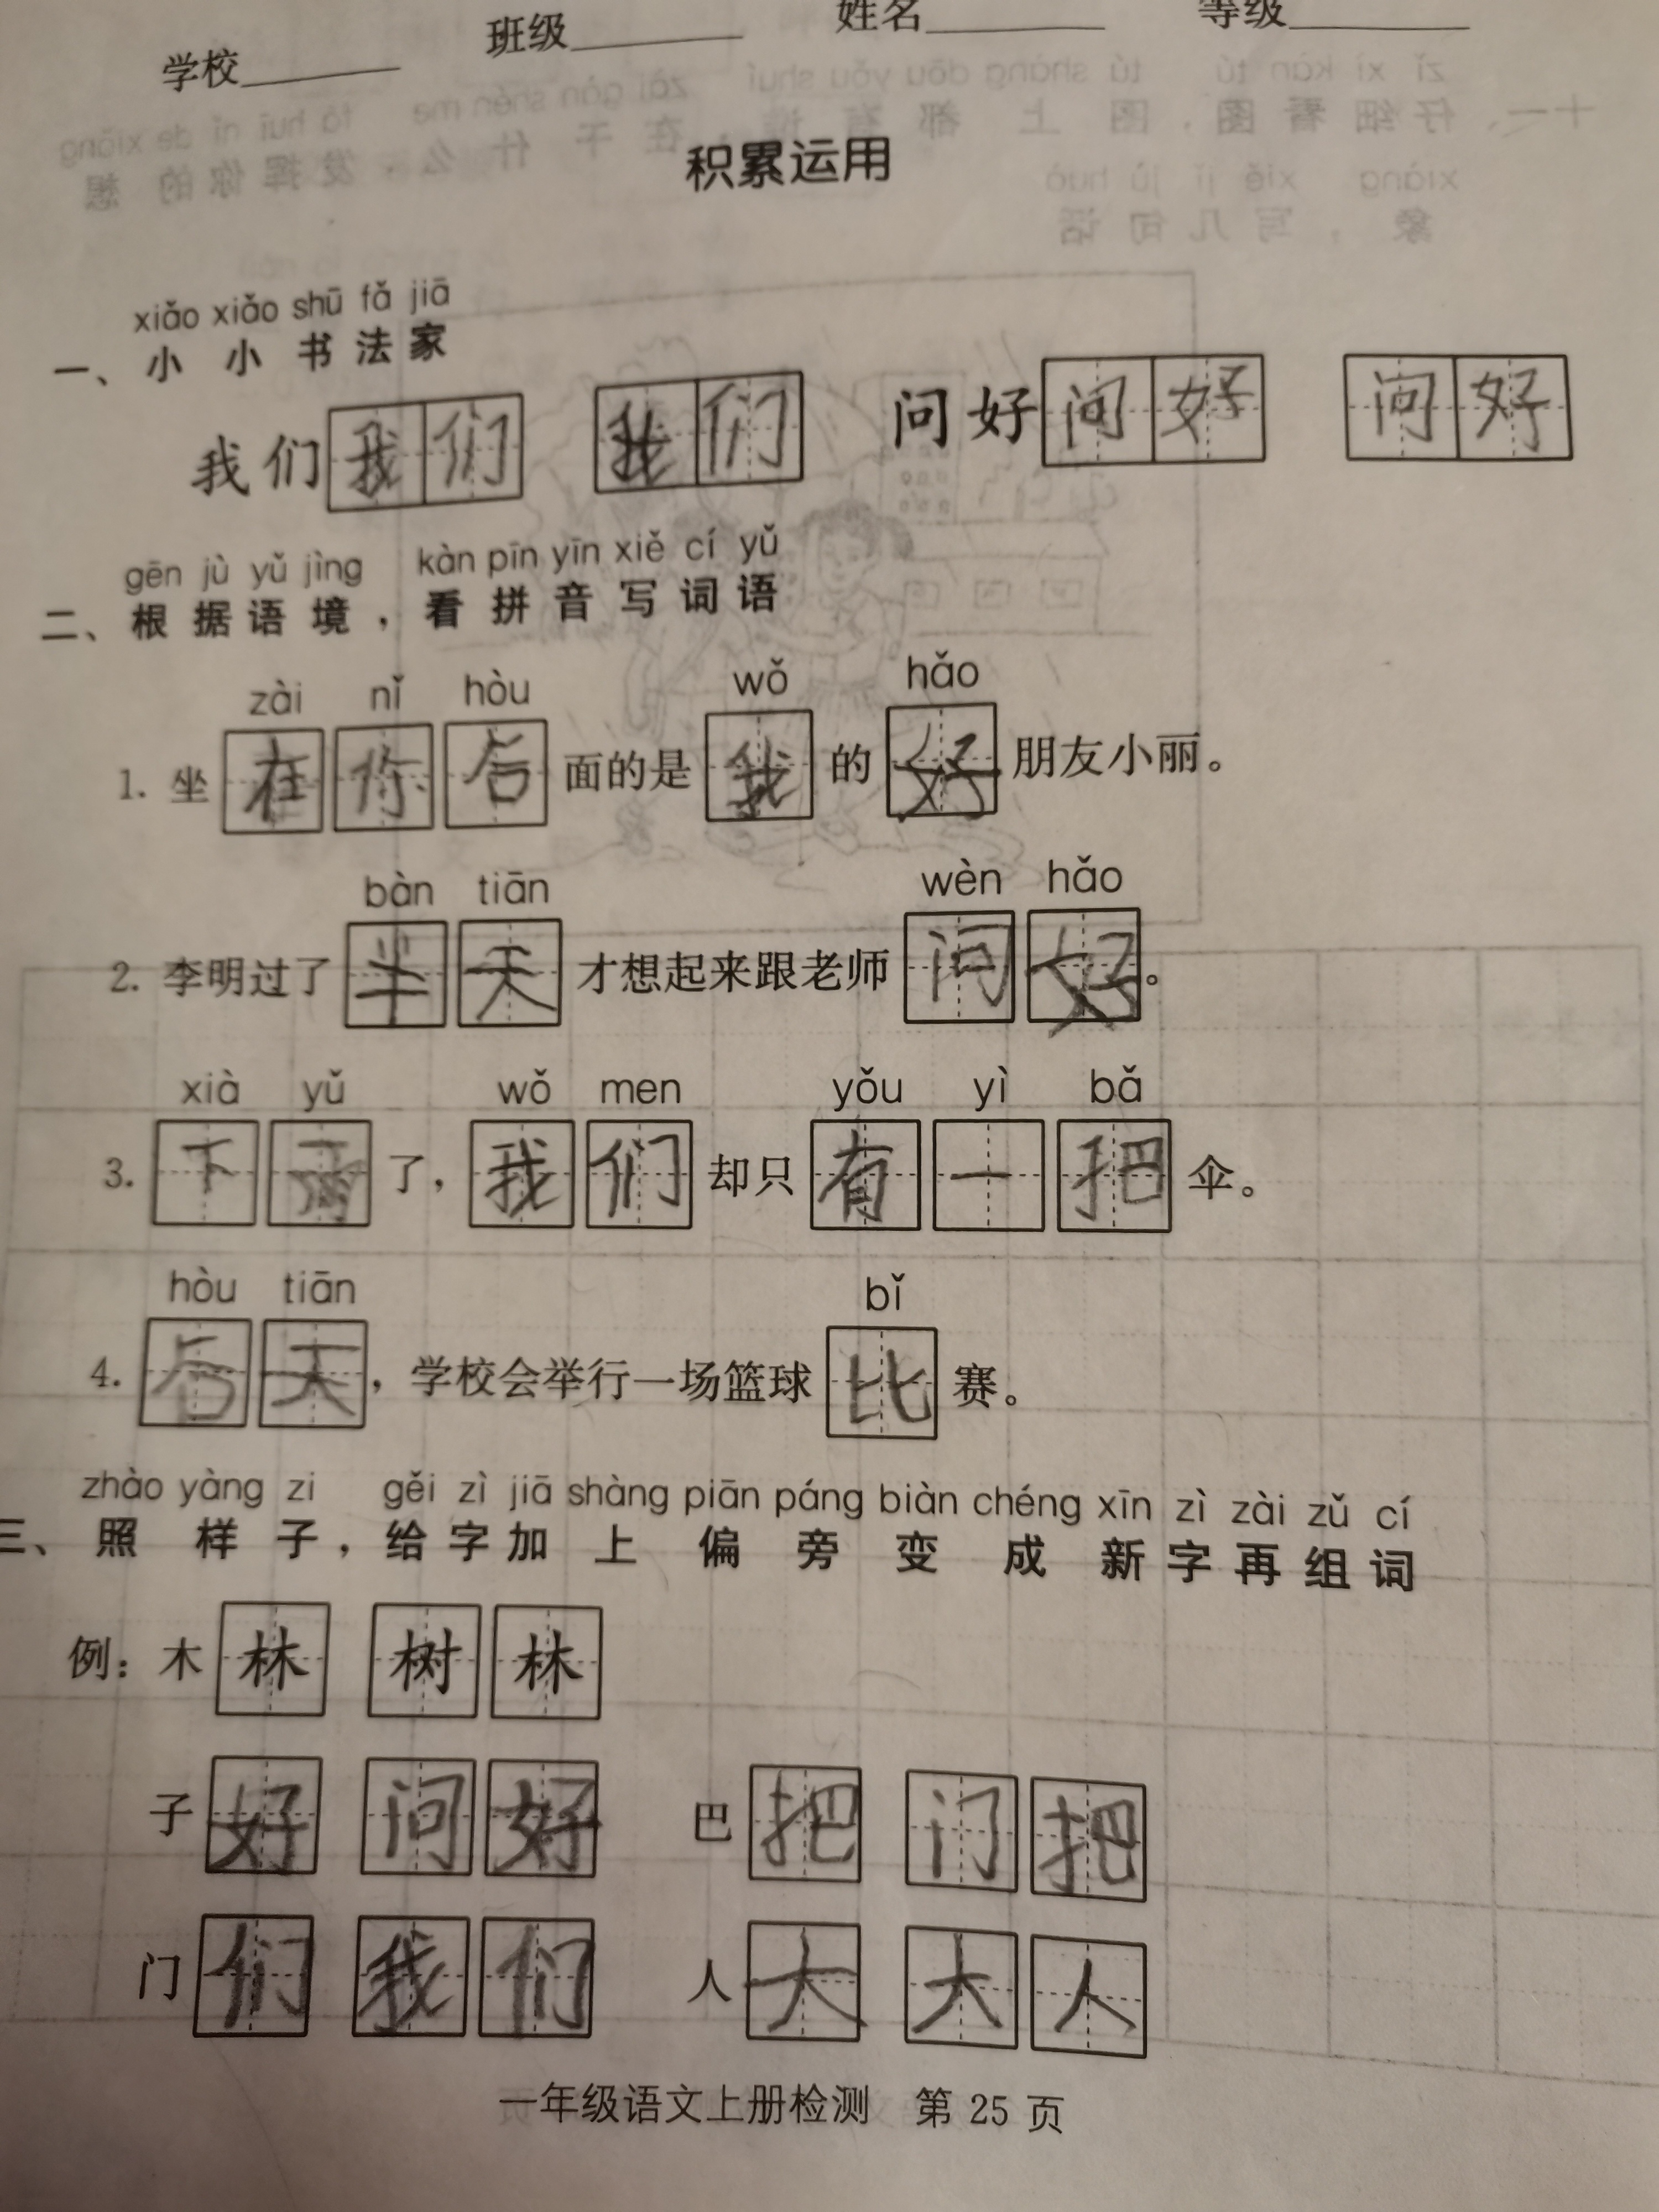 学校 班级 姓名 等级
积累运用
xiǎo xiǎo shū fǎ jiā
一、小小书法家
我们 我们 我们 问好 问好 问好
gēn jù yǔ jìng kàn pīn yīn xiě cí yǔ
二、根据语境，看拼音写词语
zài nǐ hòu wǒ hǎo
1. 坐在你后面的是我的好朋友小丽。
bàn tiān wèn hǎo
2. 李明过了半天才想起来跟老师问好。
xià yǔ wǒ men yǒu yì bǎ
3. 下雨了，我们却只有一把伞。
hòu tiān bǐ
4. 后天，学校会举行一场篮球比赛。
zhào yàng zi gěi zì jiā shàng piān páng biàn chéng xīn zì zài zǔ cí
三、照样子，给字加上偏旁变成新字再组词
例：木 林 树林
子 好 问好 巴 把 门把
门 们 我们 人 大 大人
一年级语文上册检测 第 25 页